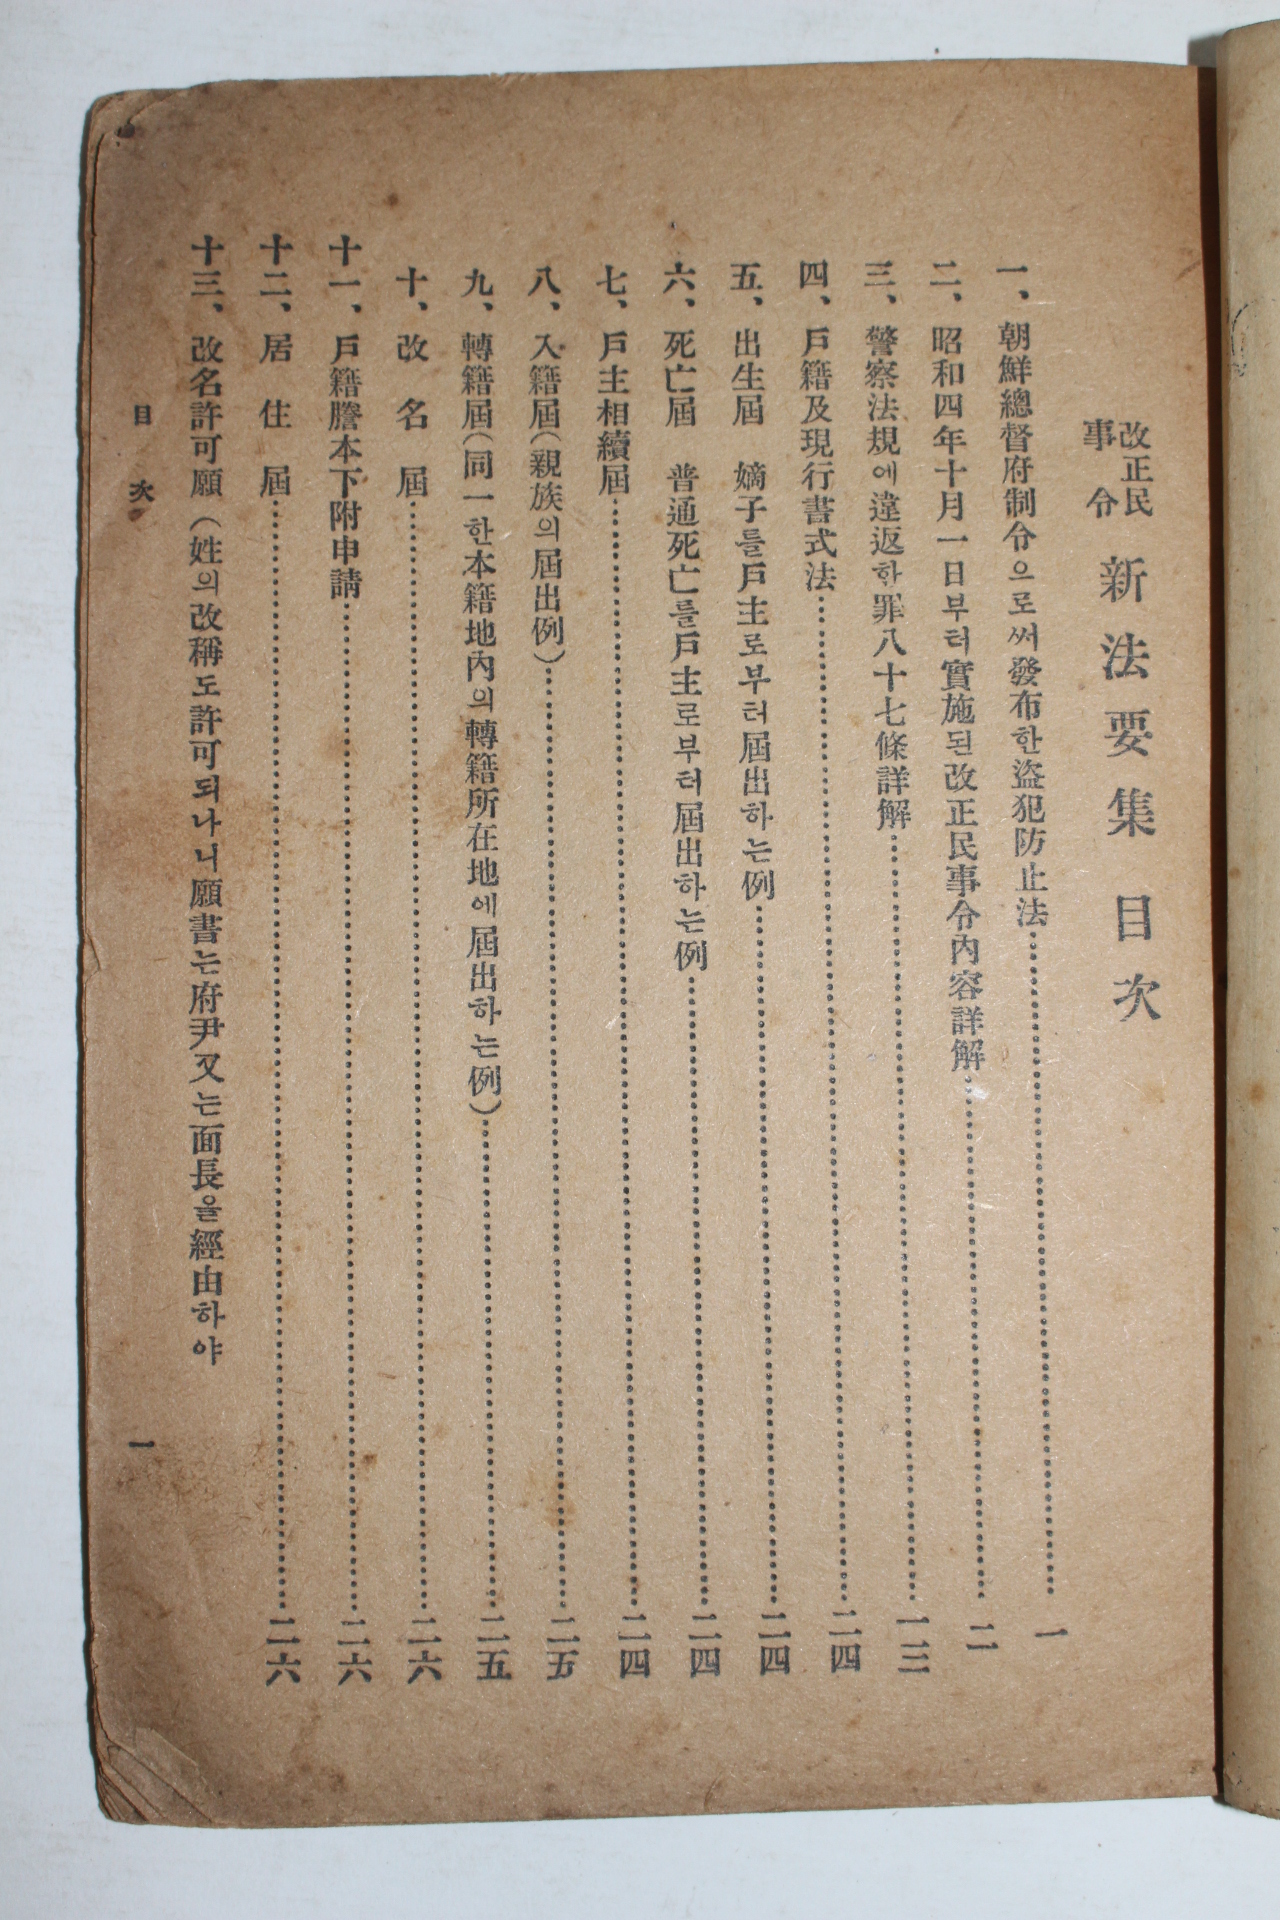 改正民事令 新法要集目次
一、朝鮮總督府制令으로써發布한盜犯防止法…………一
二、昭和四年十月一日부터實施된改正民事令內容詳解…………二
三、警察法規에違返한罪八十七條詳解…………一三
四、戶籍及現行書式法…………二四
五、出生屆 嫡子를戶主로부터屆出하는例…………二四
六、死亡屆 普通死亡를戶主로부터屆出하는例…………二四
七、戶主相續屆…………二四
八、入籍屆(親族의屆出例)…………二五
九、轉籍屆(同一한本籍地內의轉籍所在地에屆出하는例)…………二五
十、改名屆…………二六
十一、戶籍謄本下附申請…………二六
十二、居住屆…………二六
十三、改名許可願(姓의改稱도許可되나니願書는府尹又는面長을經由하야
目次 一